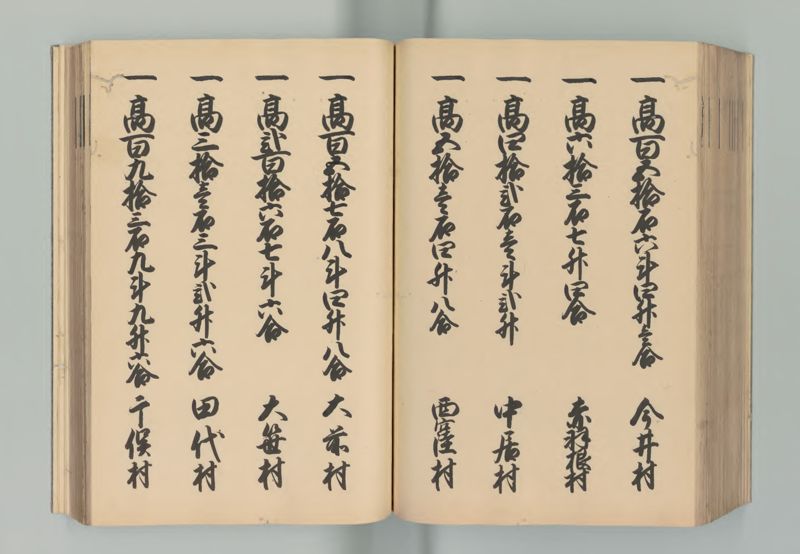 一 高百五拾石六斗四升壱合 今井村
一 高六拾三石七升四合 赤羽根村
一 高四拾弐石壱斗弐升 中居村
一 高五拾壱石四升八合 西窪村
一 高百五拾七石八斗四升八合 大前村
一 高弐百拾六石七斗六合 大笹村
一 高三拾壱石三斗弐升六合 田代村
一 高百九拾三石九斗九升六合 干俣村